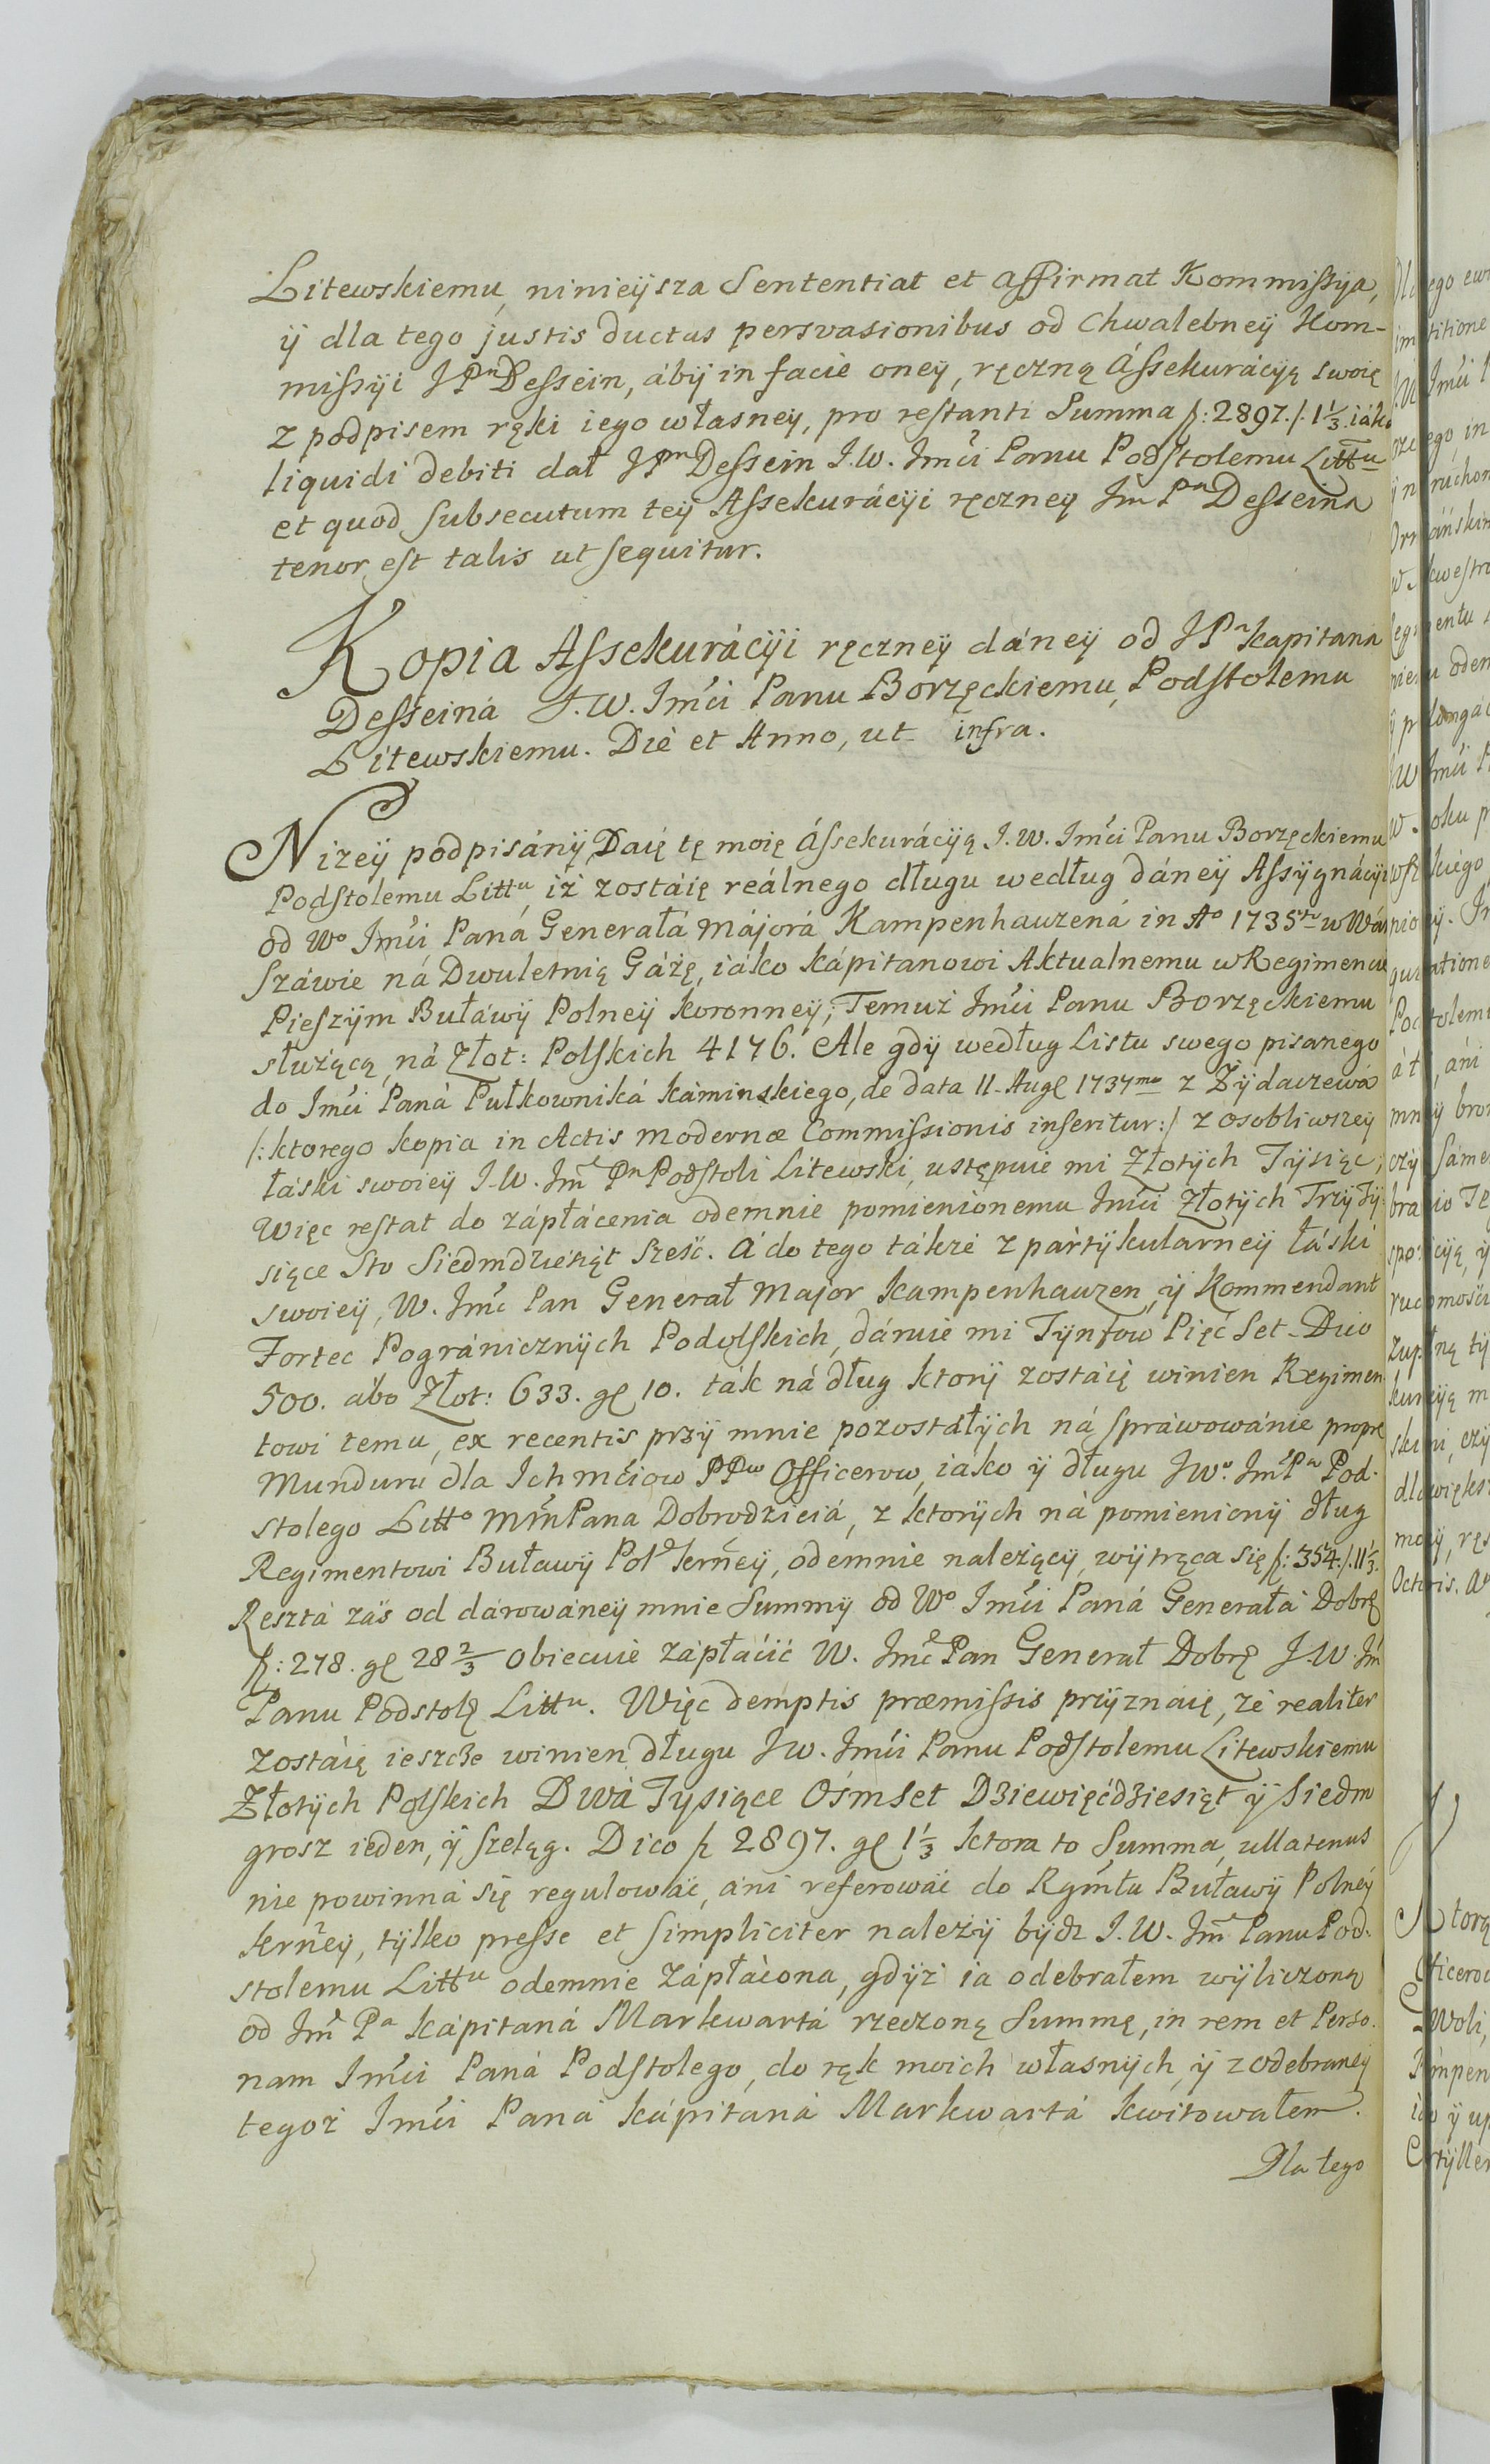 Litewskiemu, ninieÿsza Sententiat et affirmat Kommissya,
ÿ dla tego justis ductus persvasionibus od Chwalebneÿ Kom-
missÿi JPn Dessein, ábÿ in facie oneÿ, ręczną Ássekurácyą swoię
z podpisem ręki iego własney, pro restanti Summa f: 2897./. 1 1/3. iáko
liquidi debiti dał JPm Dessein J.W. Jmći Panu Podstolemu Littu
et quod subsecutum teÿ Assekurácÿi ręczneÿ Jm Pa Desseina
tenor est talis ut sequitur.
Kopia Assekurácÿi ręczneÿ dáneÿ od JPa Kapitana
Desseiná J.W. Jmći Panu Borzęckiemu, Podstolemu
Litewskiemu. Die et Anno, ut infra.
Nizeÿ podpisánÿ, Daię tę moię Ássekurácÿą J.W. Jmći Panu Borzęckiemu
Podstolemu Littu, iż zostáię reálnego długu według dáneÿ Assÿgnácÿi
od Wo Jmći Paná Generałá Májorá Kampenhauzená in Ao 1735to w Wár
száwie ná Dwuletnią Gáżę, iáko Kápitanowi Aktualnemu w Regimencie
Pieszÿm Buławÿ Polneÿ Koronneÿ; Temuż Jmći Panu Borzęckiemu
służącą, ná Złot: Polskich 4176. Ale gdÿ według Listu swego pisanego
do Jmći Paná Pułkowniká Káminskiego, de data 11. Aug 1737mo z Żÿdaczewá
/: ktorego kopia in Actis modernæ Commissionis inseritur :/ z osobliwszeÿ
łáski swoieÿ J.W. Jmć Pn Podstoli Litewski, ustępuie mi Złotÿch Tÿsiąc;
Więc restat do zápłácenia odemnie pomienionemu Jmći Złotÿch Trzÿ Tÿ-
siące Sto Siedmdziesiąt Sześć. Á do tego tákże z pártÿkularneÿ łáski
swoieÿ, W. Jmć Pan Generał Major Kampenhauzen, ÿ Kommendant
Fortec Pogránicznÿch Podolskich, dáruie mi Tÿnfow Pięć Set. Dico
500. ábo Złot: 633. gl 10. ták ná dług ktorÿ zostáię winien Regimen-
towi temu, ex recentis przÿ mnie pozostáłÿch ná spráwowánie propr
Munduru dla Ichmćiow PPw Officerow, iáko ÿ długu JWo. Jmć Pa Pod-
stolego Litto mmPana Dobrodzieiá, z ktorÿch ná pomienionÿ dług
Regimentowi Buławÿ Pol Kerneÿ, odemnie należącÿ, wÿtrąca się f: 354./. 11 1/3.
Resztá záś od dárowáneÿ mnie Summÿ od Wo Jmći Paná Generałá Dobr
f: 278. gl 28 2/3 obiecuie zápłácić W. Jmć Pan Generał Dobr J.W. Jm
Panu Podstol Littu. Więc demptis præmissis przÿznáię, że realiter
zostáię ieszcze winien długu JW. Jmći Panu Podstolemu Litewskiemu
Złotÿch Polskich Dwá Tysiące Ośmset Dziewięćdziesiąt ÿ Siedm
grosz ieden, ÿ szeląg. Dico f 2897. gl 1 1/3 ktora to Summa, ullatenus
nie powinná się regulowáć, áni referowáć do Rgmtu Buławÿ Polneÿ
Kerneÿ, tÿlko presse et simpliciter należÿ bÿdź J.W. Jmć Panu Pod-
stolemu Littu odemnie zápłácona, gdÿż ia odebrałem wÿliczoną
od Jmć Pa Kápitaná Markwartá rzeczoną Summę, in rem et Perso-
nam Jmći Paná Podstolego, do rąk moich własnÿch, ÿ z odebraneÿ
tegoż Jmći Paná Kápitaná Markwartá kwitowałem.
Dla tego